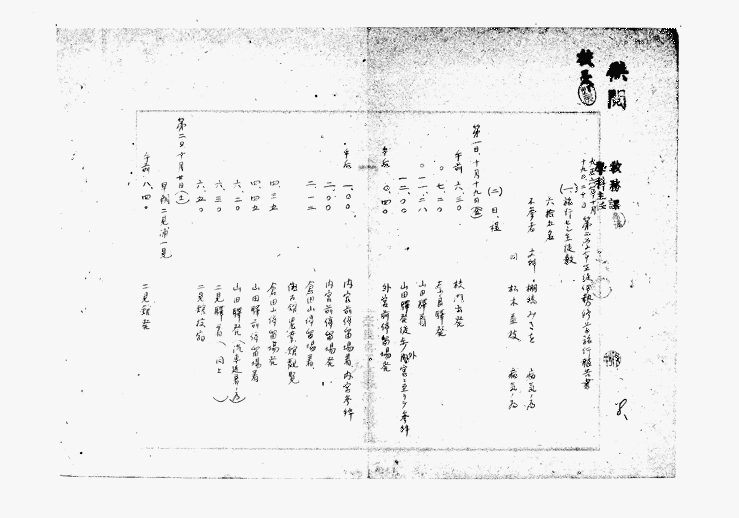 供閲
校長
教務課
学科主任
大正六年十月
十九、二十日
第二学年生徒伊勢修学旅行報告書
(一) 旅行セシ生徒数
六拾五名
不参者
病気ノ為
同 松木
病気ノ為
(二) 日程
第一日、十月十九日(金)
午前 六、三〇 校門出発
七、二〇 奈良駅発
一一、二八 山田駅着
一二、〇〇 山田駅発徒歩外宮ニ至リテ参拝
午后 〇、四〇 外宮前停留場発
午后 一、〇〇 内宮前停留場着 内宮参拝
二、〇〇 内宮前停留場発
二、一二 倉田山停留場着
農業館観覧
四、三五 倉田山停留場発
四、四五 山田駅前停留場着
六、二〇 山田駅発
六、三〇 二見駅着 (同上)
六、五〇 二見館投宿
第二日十月廿日(土)
早朝二見浦一見
午前 八、四〇 二見館発